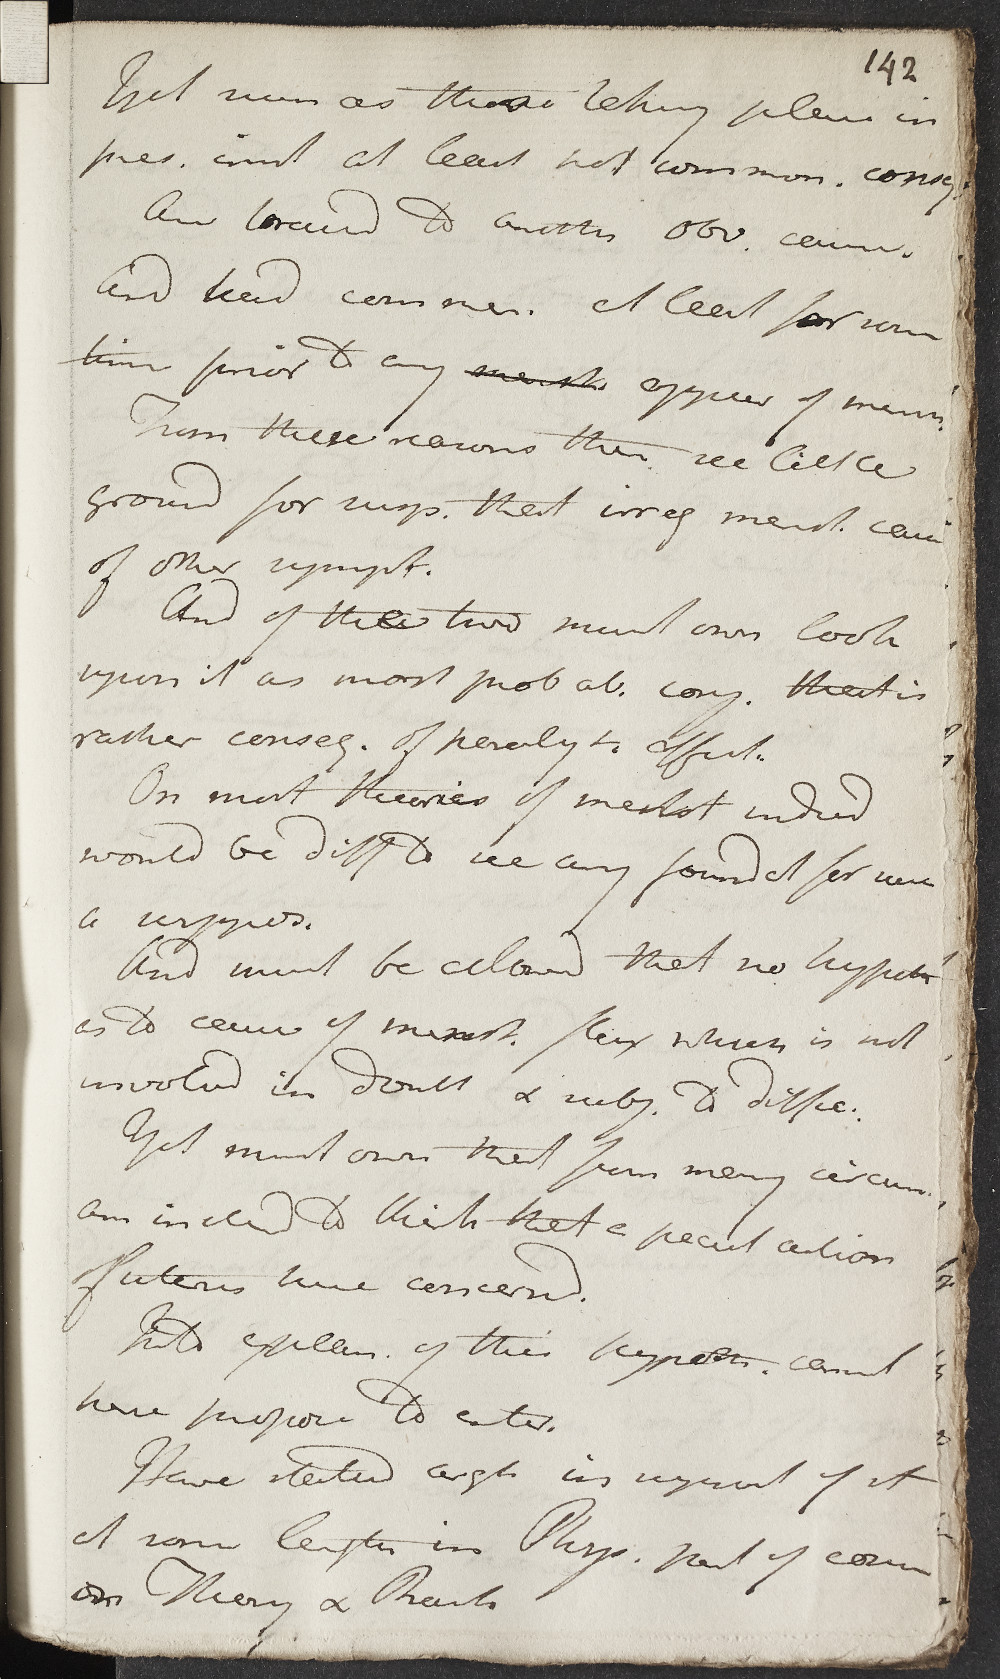 142
Yet even as these taking place in
pres. inst at least not common. conseq.
Are traced to another obv. cause.
And had commen. at least for some
time prior to any appear of menst.
From these reasons then see little
ground for susp. that irreg menst. cause
of other sympt.
And of these two must own look
upon it as most probab. conj. that is
rather conseq. of paralyt. affect.
On most theories of menst indeed
would be diff to see any foundat for such
a suppos.
And must be allowed that no hypoth
as to cause of menst. flux which is not
involved in doubt & subj. to diffic.
Yet must own that from many circum.
am inclined to think that a peculi action
of uterus here concerned.
Into explan. of this hypoth. cannot
here propose to enter.
Have stated argts in support of it
at some length in Phys. part of course
on Theory & Pract